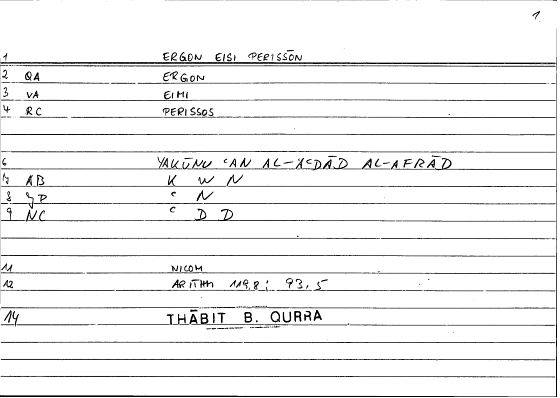 1
1 ERGON EISI PERISSŌN
2 QA ERGON
3 VA EIMI
4 RC PERISSOS
6 YAKŪNU ʿAN AL-AʿDĀD AL-AFRĀD
7 AB K W N
8 ʿ N
9 NC ʿ D D
11 NICOM
12 ARITHM 119,8; 93,5
14 THĀBIT B. QURRA